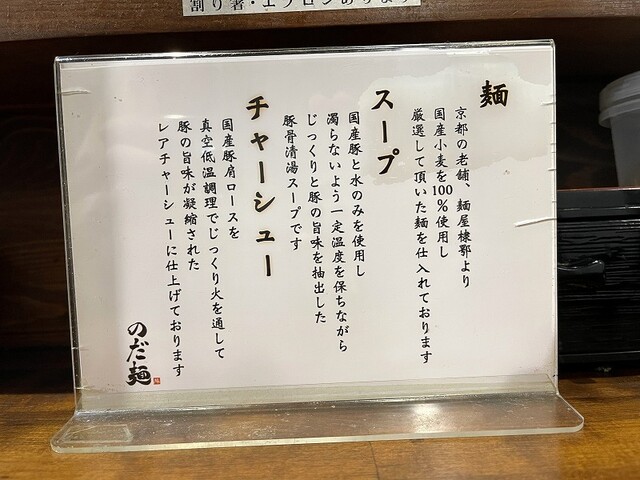 割り箸・エプロンあります
麺
京都の老舗、麺屋棣鄂より
国産小麦を100%使用し
厳選して頂いた麺を仕入れております
スープ
国産豚と水のみを使用し
濁らないよう一定温度を保ちながら
じっくりと豚の旨味を抽出した
豚骨清湯スープです
チャーシュー
国産豚肩ロースを
真空低温調理でじっくり火を通して
豚の旨味が凝縮された
レアチャーシューに仕上げております
のだ麺